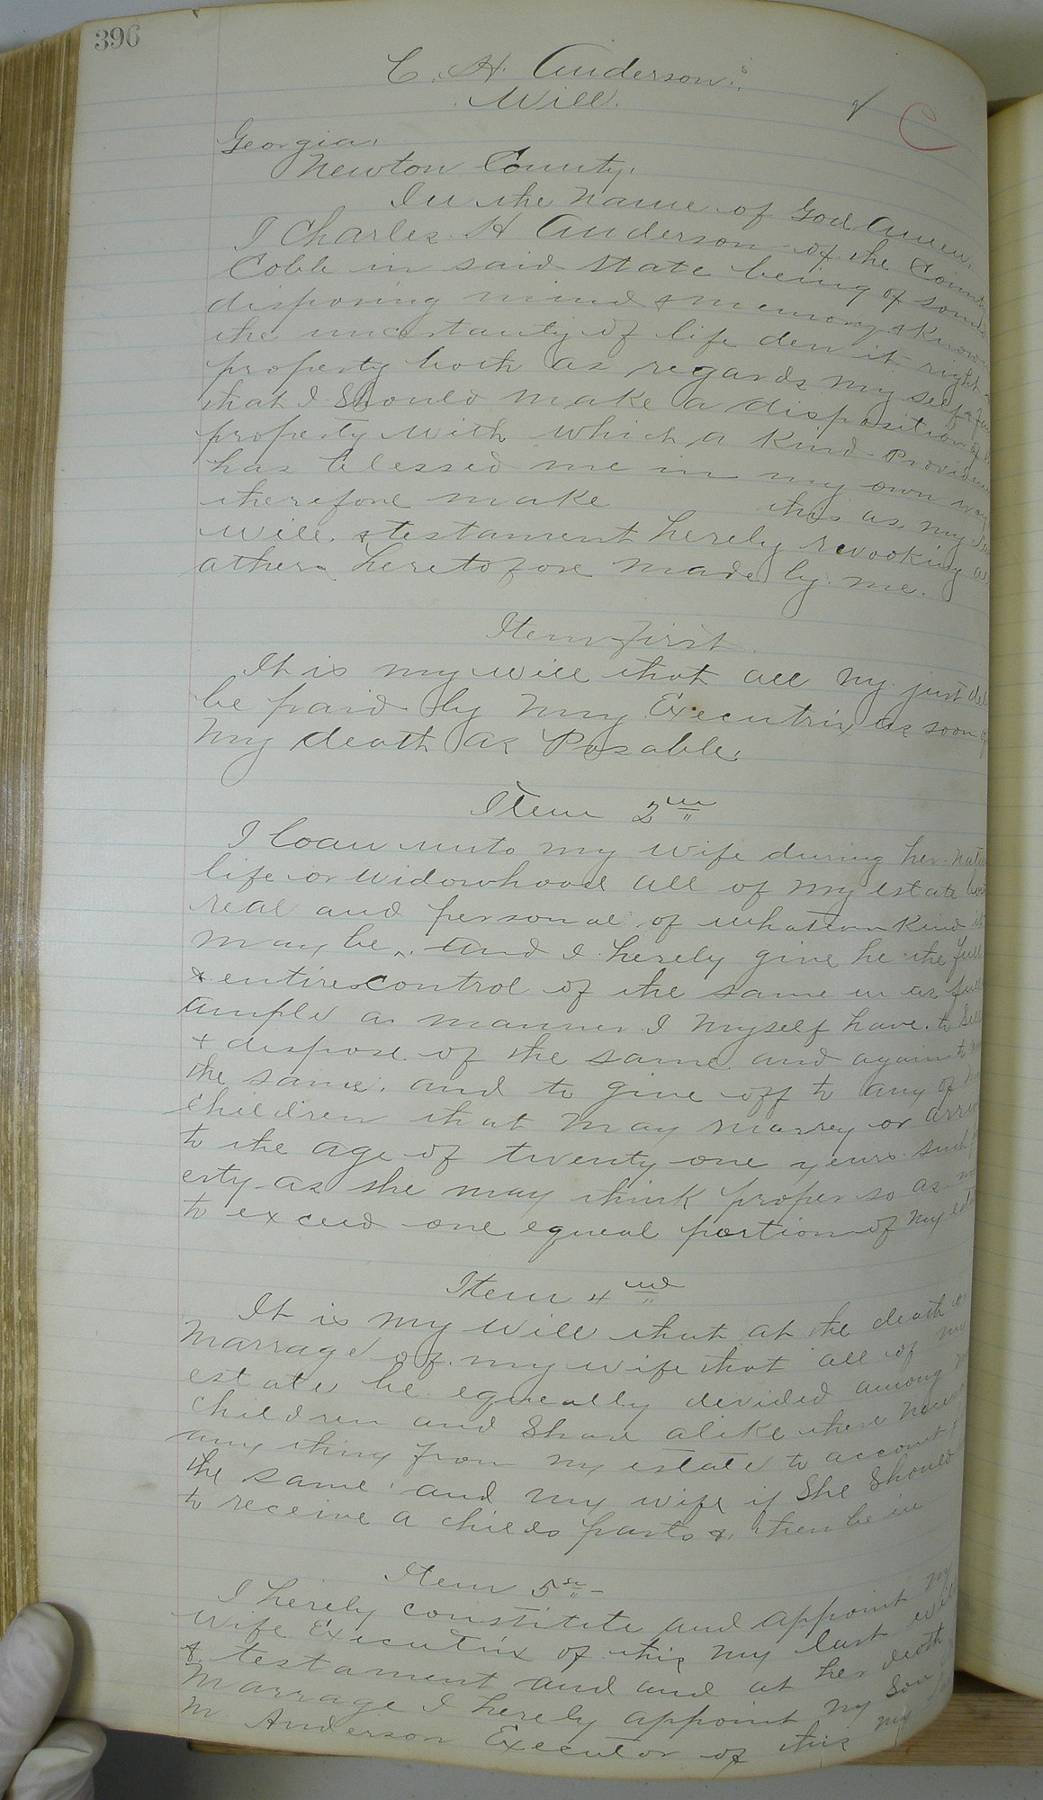 396
C. H. Anderson's
Will.
Georgia,
Newton County.
In the name of God Amen.
I Charles H Anderson of the County
Cobb in said State being of sound
disposing mind & memory & know
the uncertanty of life dem it right
property both as regards my self &
that I Should make a disposition of
property with which a Kind Providen
has blessed me in my own way
therefore make this as my
will & testament hereby revooking all
athers heretofore made by me.
Item first
It is my will that all my just
be paid by my Executrix as soon
my death as Posable.
Item 2nd
I loan unto my wife during her natu
life or widowhood all of my estate
real and personal of whatever Kind it
may be, and I hereby give he the full
& entire control of the same in as full
ample a manner I myself have to Sell
& dispose of the same and again to
the same, and to give off to any of
children that may marrey or arriv
to the age of twenty one years such
erty as she may think proper so as
to exceed one equeal portion of my
Item 4nd
It is my Will that at the death or
Marrage of my wife that all of my
estate be equeally devided among
children and Share alike
any thing from my estate to account
the same and my wife if She Should
to receive a childs parts & then be in
Item 5
I hereby constitute and appoint my
wife Executrix of this my last will
& testament and and at her death
Marrage I hereby appoint my Son
M Anderson Executor of this my